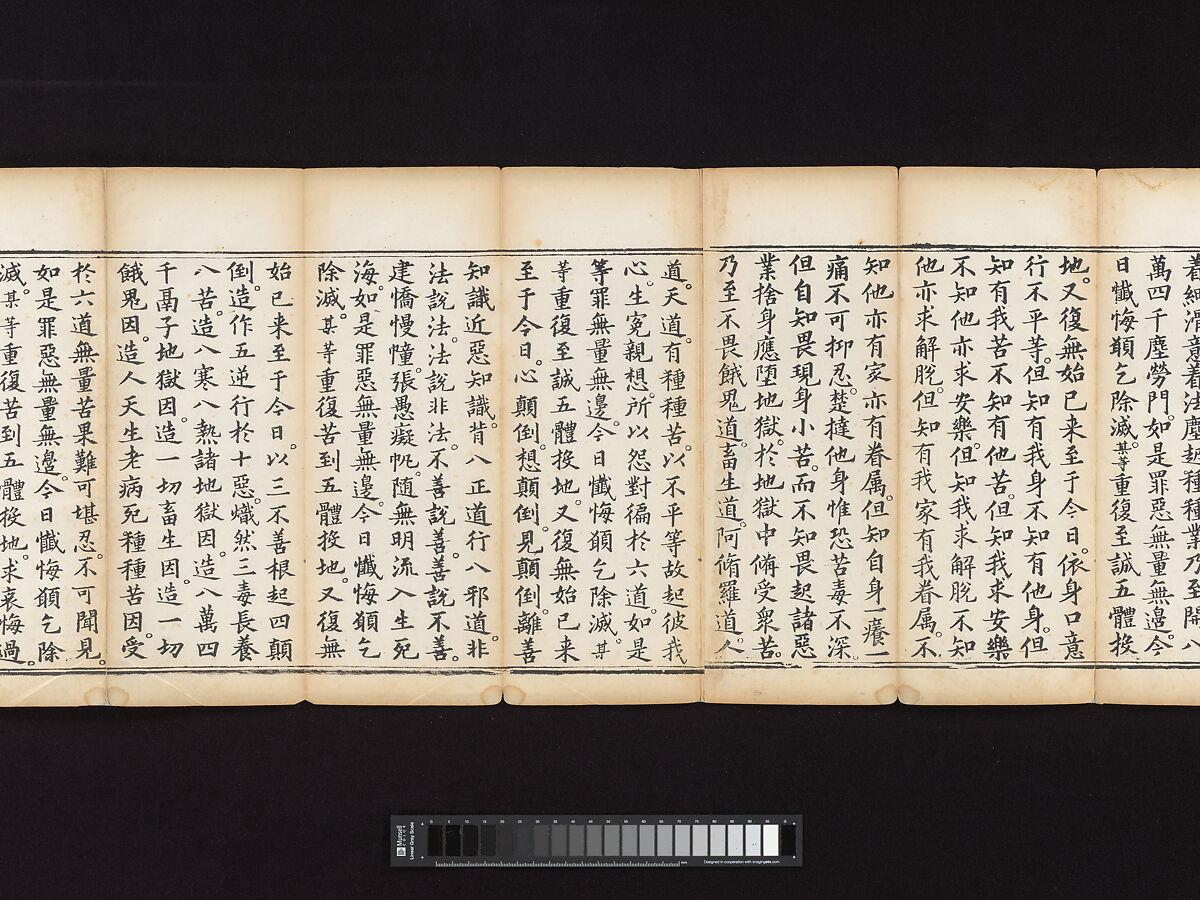 着細滑意着法塵起種種業乃至開八
萬四千塵勞門。如是罪惡無量無邊。今
日懺悔願乞除滅。某等重復至誠五體投
地。又復無始已来至于今日。依身口意
行不平等。但知有我身不知有他身。但
知有我苦不知有他苦。但知我求安樂
不知他亦求安樂。但知我求解脫不知
他亦求解脫。但知有我家有我眷属。不
知他亦有家亦有眷属。但知自身一癢一
痛不可抑忍。楚撻他身惟恐苦毒不深。
但自知畏現身小苦。而不知畏起諸惡
業捨身應堕地獄。於地獄中俻受衆苦。
乃至不畏餓鬼道。畜生道。阿脩羅道。人
道。天道。有種種苦。以不平等故起彼我
心。生寃親想。所以怨對徧於六道。如是
等罪無量無邊。今日懺悔願乞除滅。某
等重復至誠五體投地。又復無始已来
至于今日。心顛倒。想顛倒。見顛倒。離善
知識近惡知識。背八正道行八邪道。非
法說法。法說非法。不善說善。善說不善。
建憍慢幢。張愚癡帆。随無明流入生死
海。如是罪惡無量無邊。今日懺悔願乞
除滅。某等重復苦到五體投地。又復無
始已来至于今日。以三不善根起四顛
倒。造作五逆行於十惡。熾然三毒長養
八苦。造八寒八熱諸地獄因。造八萬四
千鬲子地獄因。造一切畜生因。造一切
餓鬼因。造人天生老病死種種苦因。受
於六道無量苦果難可堪忍。不可聞見。
如是罪惡無量無邊。今日懺悔願乞除
滅。某等重復苦到五體投地。求哀悔過。
Munsell
COLOR
Linear Gray Scale
0 5 10 15 20 25 30 35 40 45 50 55 60 65 70 75 80 85 90 95
Designed in cooperation with imagingetc.com